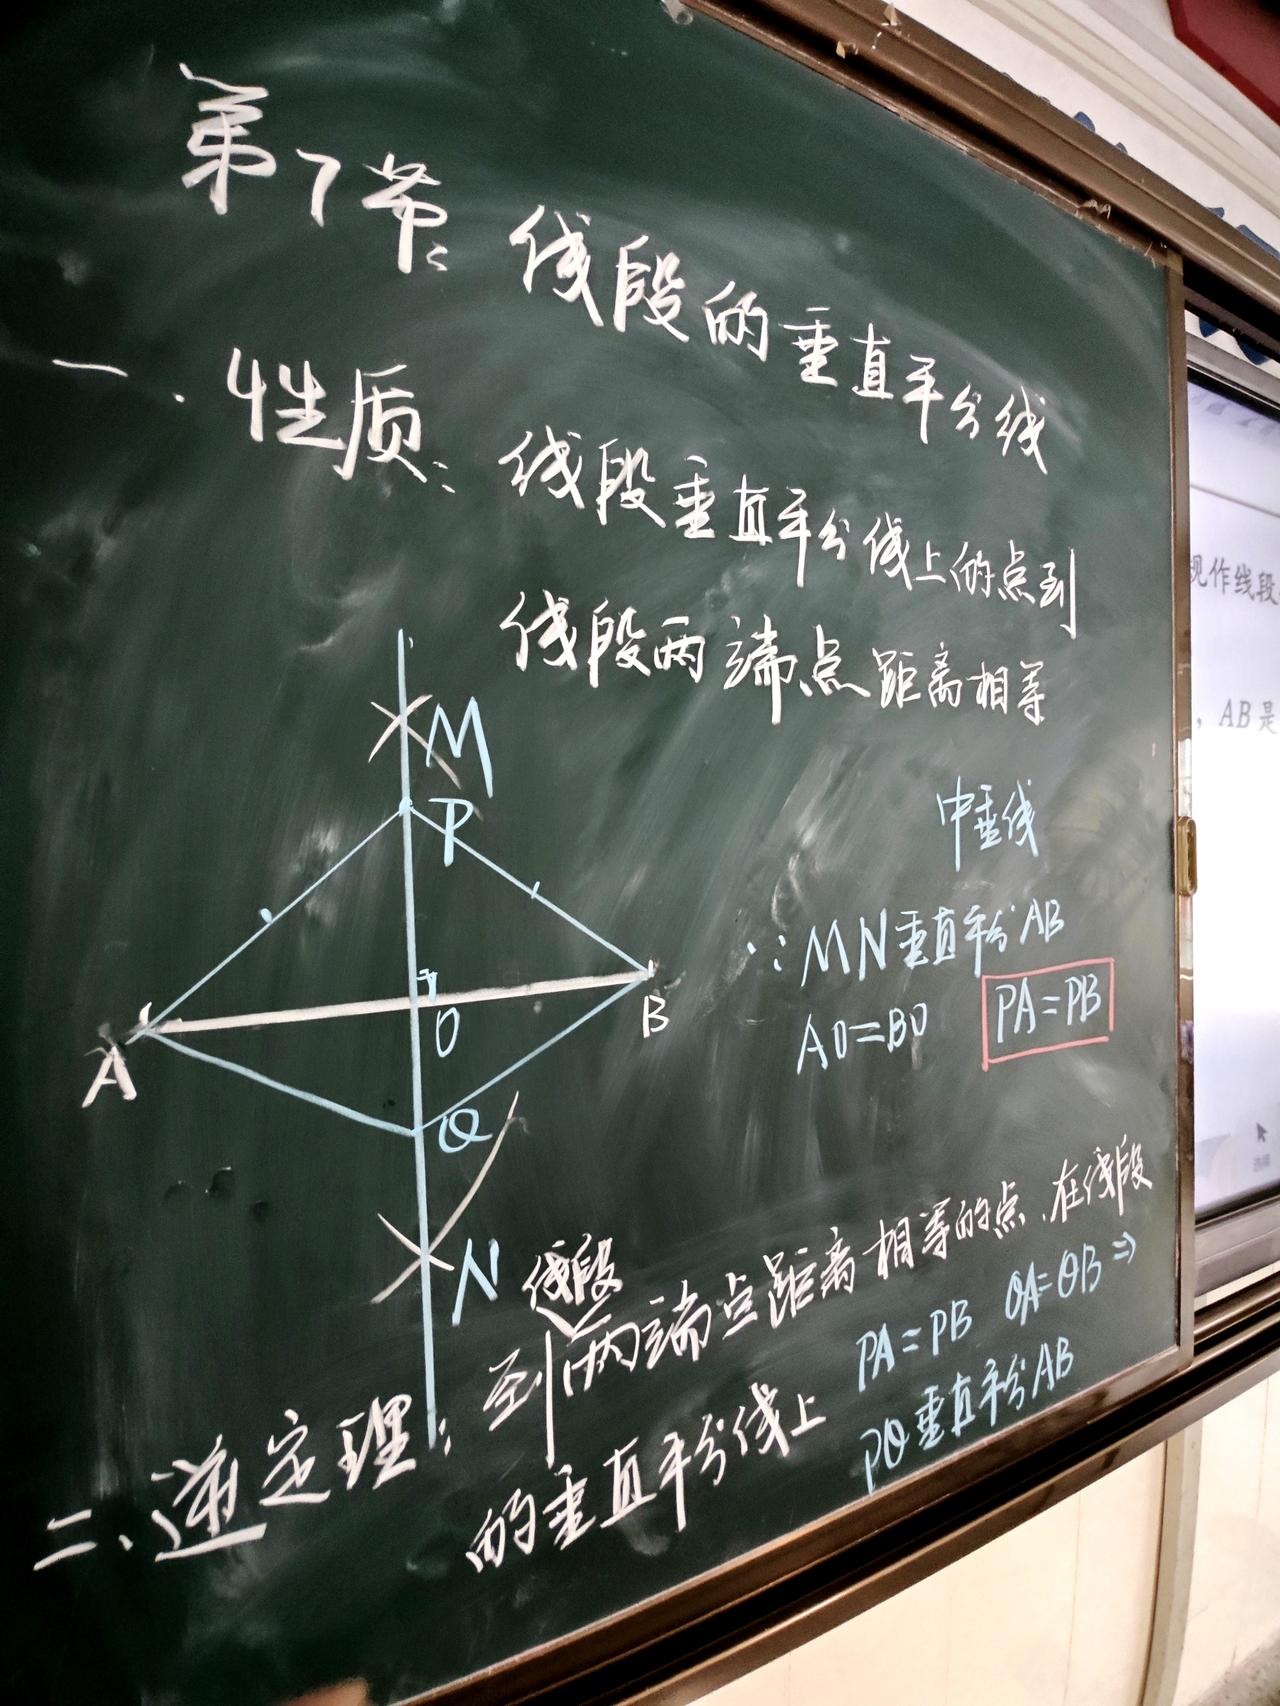 第7节: 线段的垂直平分线
一. 性质: 线段垂直平分线上的点到
线段两端点距离相等
M
P
A
O
B
Q
N
中垂线
∵ MN垂直平分AB
AO=BO PA=PB
二、逆定理: 到线段两端点距离相等的点、在线段
的垂直平分线上
PA=PB QA=QB ⇒
PQ垂直平分AB
规作线段
, AB 是
选择